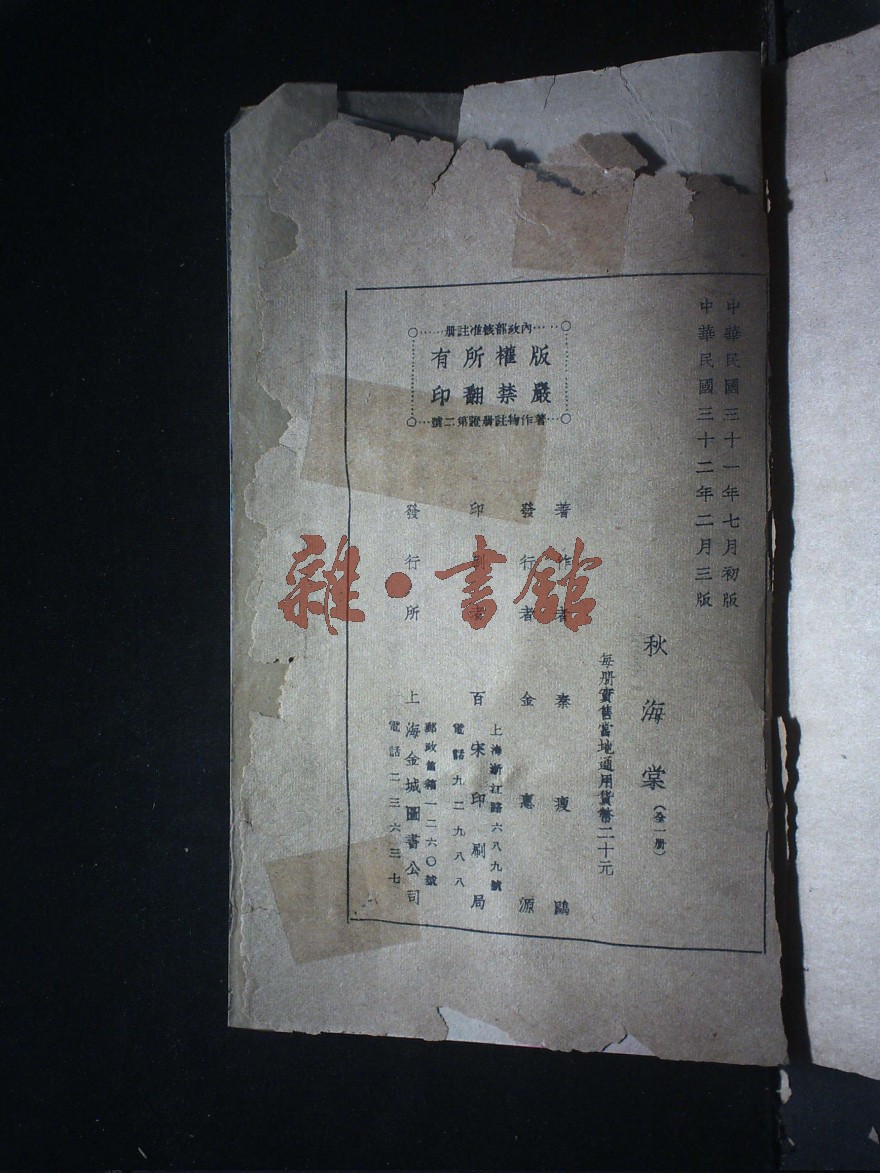 中華民國三十一年七月初版
中華民國三十二年二月三版
秋海棠（全一册）
每册實售當地通用貨幣二十元
著作者 秦瘦鷗
發行者 金惠源
印刷者 百宋印刷局
上海浙江路六八九號
電話九二九八八
發行所 上海金城圖書公司
郵政信箱一二六〇號
電話二三六三七
內政部核准註册
版權所有
嚴禁翻印
著作物註册證第二號
雜·書館